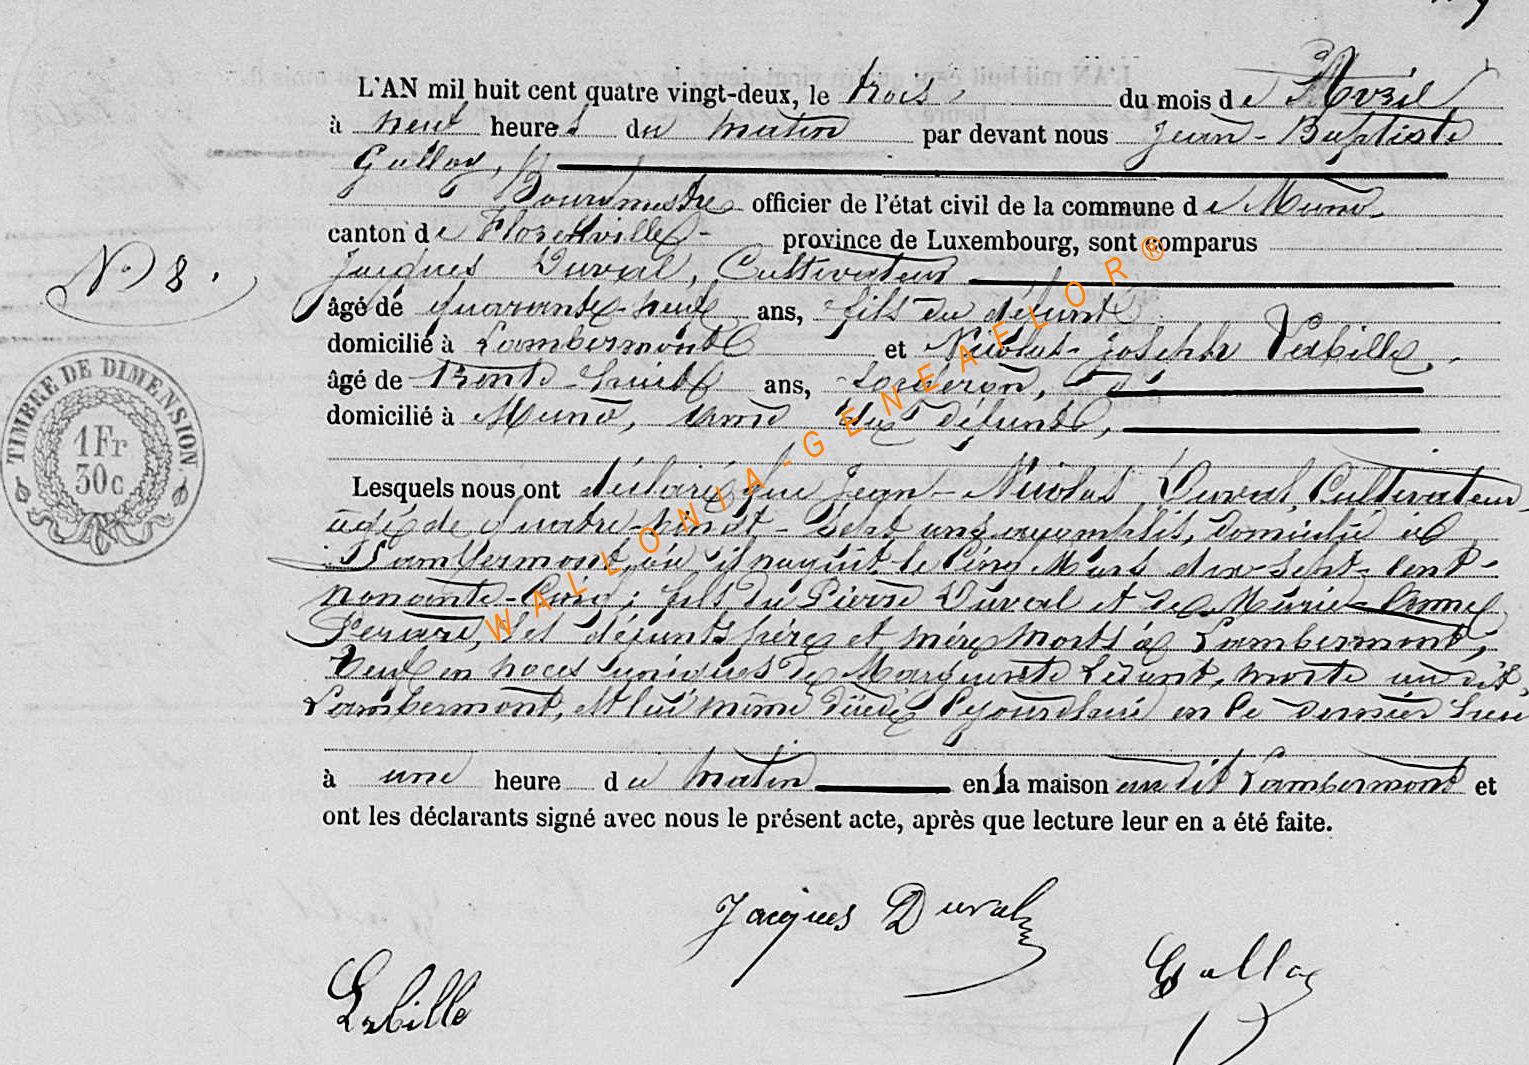 L'AN mil huit cent quatre vingt-deux, le trois du mois de Avril
à neuf heures du matin par devant nous Jean-Baptiste
Galloy,
Bourgmestre officier de l'état civil de la commune de Muno,
canton de Florenville province de Luxembourg, sont comparus
Jacques Duval, Cultivateur
N° 8.
âgé de quarante-neuf ans, fils du défunt
domicilié à Lambermont et Nicolas-Joseph Labille,
âgé de trente-huit ans,
domicilié à Muno, ami du défunt,
TIMBRE DE DIMENSION.
1 Fr
30c
Lesquels nous ont déclaré que Jean-Nicolas Duval, Cultivateur,
âgé de quatre-vingt-sept ans accomplis, domicilié à
Lambermont, où il naquit le cinq Mars dix-sept-cent-
nonante-cinq; fils du Pierre Duval et de Marie-Anne
les défunts père et mère morts à Lambermont;
Veuf en noces uniques de Marguerite morte au dit
Lambermont, et lui même décédé cejourd'hui en ce dernier lieu
à une heure du matin en sa maison au dit Lambermont et
ont les déclarants signé avec nous le présent acte, après que lecture leur en a été faite.
Jacques Duval
Labille
Galloy
WALLONIA-GENEAELOR®